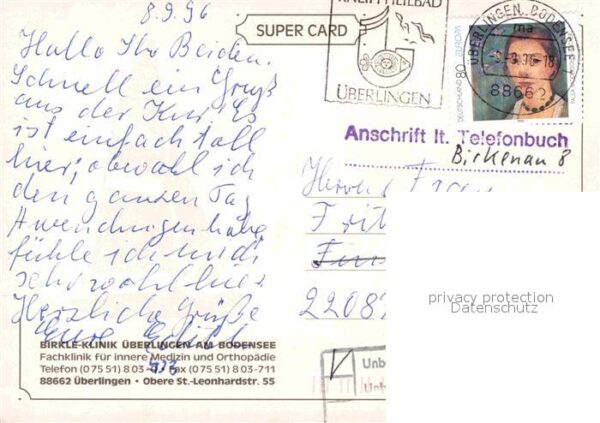 8.9.96
Hallo Ihr Beiden.
Schnell ein Gruß
aus der Kur. Es
ist einfach toll
hier, obwohl ich
den ganzen Tag
Anwendungen habe
fühle ich mich
sehr wohl hier
Herzliche Grüße
Eure
SUPER CARD
KNEIPPHEILBAD
ÜBERLINGEN
DEUTSCHLAND 80 EUROPA
ÜBERLINGEN, BODENSEE 1
ma
88662
Anschrift lt. Telefonbuch
Birkenau 8
Herrn + Frau
Frit
2208
privacy protection
Datenschutz
Unb
BIRKLE-KLINIK ÜBERLINGEN AM BODENSEE
Fachklinik für innere Medizin und Orthopädie
Telefon (0 75 51) 8 03- Fax (0 75 51) 8 03-711
88662 Überlingen • Obere St.-Leonhardstr. 55